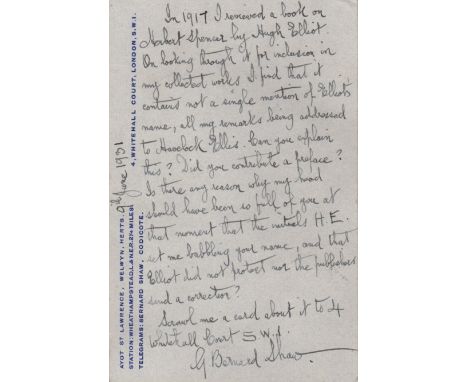 In 1917 I reviewed a book on
Herbert Spencer by Hugh Elliot.
On looking through it for inclusion in
my collected works I find that it
contains not a single mention of Elliot's
name, all my remarks being addressed
to Havelock Ellis. Can you explain
this? Did you contribute a preface?
Is there any reason why my mind
should have been so full of you at
that moment that the initials H E.
set me babbling your name, and that
Elliot did not protest nor the publishers
send a correction?
Scrawl me a card about it to 4
Whitehall Court S W.1.
G. Bernard Shaw
4, WHITEHALL COURT, LONDON, S.W.1.
9th June 1931
AYOT ST LAWRENCE, WELWYN, HERTS.
STATION: WHEATHAMPSTEAD, L.& N.E.R. 2¼ MILES.
TELEGRAMS: BERNARD SHAW, CODICOTE.